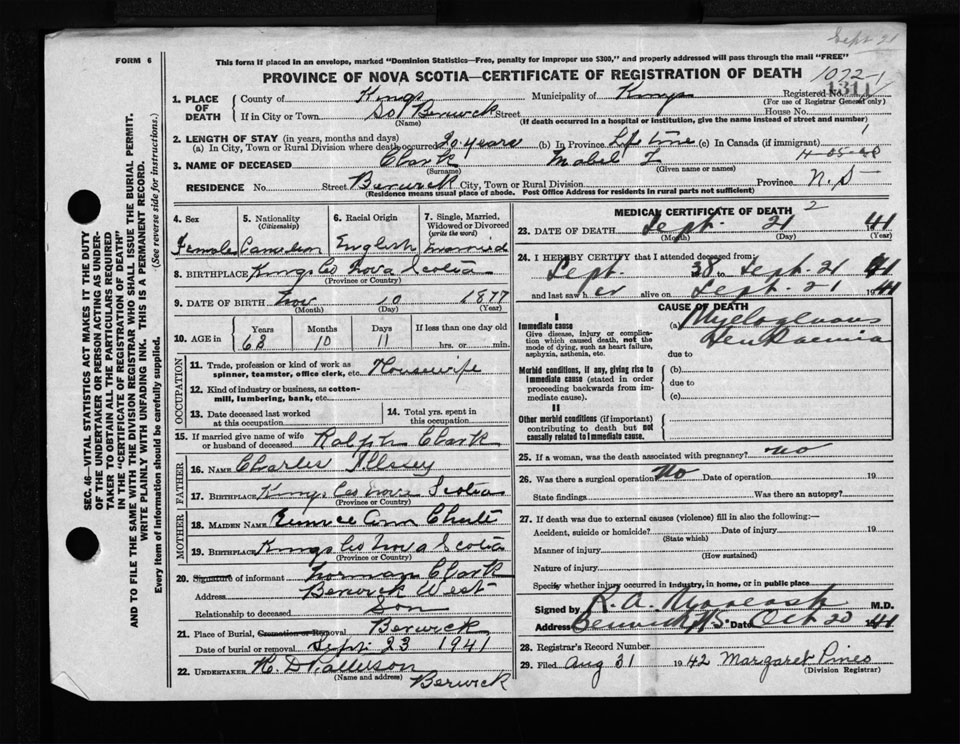 Sept 21
FORM 6
This form if placed in an envelope, marked "Dominion Statistics—Free, penalty for improper use $300," and properly addressed will pass through the mail "FREE"
PROVINCE OF NOVA SCOTIA—CERTIFICATE OF REGISTRATION OF DEATH
1072-1
1. PLACE OF DEATH County of Kings Municipality of Kings Registered No. 1311
(For use of Registrar General only)
If in City or Town So Berwick Street House No.
(Name) (If death occurred in a hospital or institution, give the name instead of street and number)
2. LENGTH OF STAY (in years, months and days)
(a) In City, Town or Rural Division where death occurred 20 years (b) In Province Life time (c) In Canada (if immigrant)
3. NAME OF DECEASED Clark Mabel I
(Surname) (Given name or names)
RESIDENCE No. Street Berwick City, Town or Rural Division Province N.S
(Residence means usual place of abode. Post Office Address for residents in rural parts not sufficient)
4. Sex Female
5. Nationality (Citizenship) Canadian
6. Racial Origin English
7. Single, Married, Widowed or Divorced (write the word) married
8. BIRTHPLACE Kings Co Nova Scotia
(Province or Country)
9. DATE OF BIRTH Nov 10 1877
(Month) (Day) (Year)
10. AGE in Years Months Days If less than one day old
63 10 11 hrs. or min.
OCCUPATION
11. Trade, profession or kind of work as spinner, teamster, office clerk, etc. Housewife
12. Kind of industry or business, as cotton-mill, lumbering, bank, etc.
13. Date deceased last worked at this occupation
14. Total yrs. spent in this occupation
15. If married give name of wife or husband of deceased Ralph Clark
FATHER
16. NAME Charles Illsley
17. BIRTHPLACE Kings Co Nova Scotia
(Province or Country)
MOTHER
18. MAIDEN NAME Eunice Ann Chute
19. BIRTHPLACE Kings Co Nova Scotia
(Province or Country)
20. Signature of informant Norman Clark
Address Berwick West
Relationship to deceased Son
21. Place of Burial, Cremation or Removal Berwick
Date of burial or removal Sept 23 1941
22. UNDERTAKER H. D.
(Name and address) Berwick
MEDICAL CERTIFICATE OF DEATH 2
23. DATE OF DEATH Sept. 21 41
(Month) (Day) (Year)
24. I HEREBY CERTIFY that I attended deceased from:
Sept. 38 to Sept. 21 1941
and last saw her alive on Sept. 21 1941
CAUSE OF DEATH
I
Immediate cause (a) Myelogenous Leukaemia
Give disease, injury or complication which caused death, not the mode of dying, such as heart failure, asphyxia, asthenia, etc.
due to
Morbid conditions, if any, giving rise to immediate cause (stated in order proceeding backwards from immediate cause).
(b)
due to
(c)
II
Other morbid conditions (if important) contributing to death but not causally related to immediate cause.
25. If a woman, was the death associated with pregnancy? no
26. Was there a surgical operation? No Date of operation 19
State findings Was there an autopsy?
27. If death was due to external causes (violence) fill in also the following:—
Accident, suicide or homicide? Date of injury 19
(State which)
Manner of injury
(How sustained)
Nature of injury
Specify whether injury occurred in industry, in home, or in public place
Signed by R. A. M.D.
Address Berwick NS Date Oct 20 1941
28. Registrar's Record Number
29. Filed Aug 31 1942 Margaret Pineo
(Division Registrar)
SEC. 46—VITAL STATISTICS ACT MAKES IT THE DUTY
OF THE UNDERTAKER OR PERSON ACTING AS UNDER-
TAKER TO OBTAIN ALL THE PARTICULARS REQUIRED
IN THE "CERTIFICATE OF REGISTRATION OF DEATH"
AND TO FILE THE SAME WITH THE DIVISION REGISTRAR WHO SHALL ISSUE THE BURIAL PERMIT.
WRITE PLAINLY WITH UNFADING INK. THIS IS A PERMANENT RECORD.
Every item of information should be carefully supplied.
(See reverse side for instructions.)